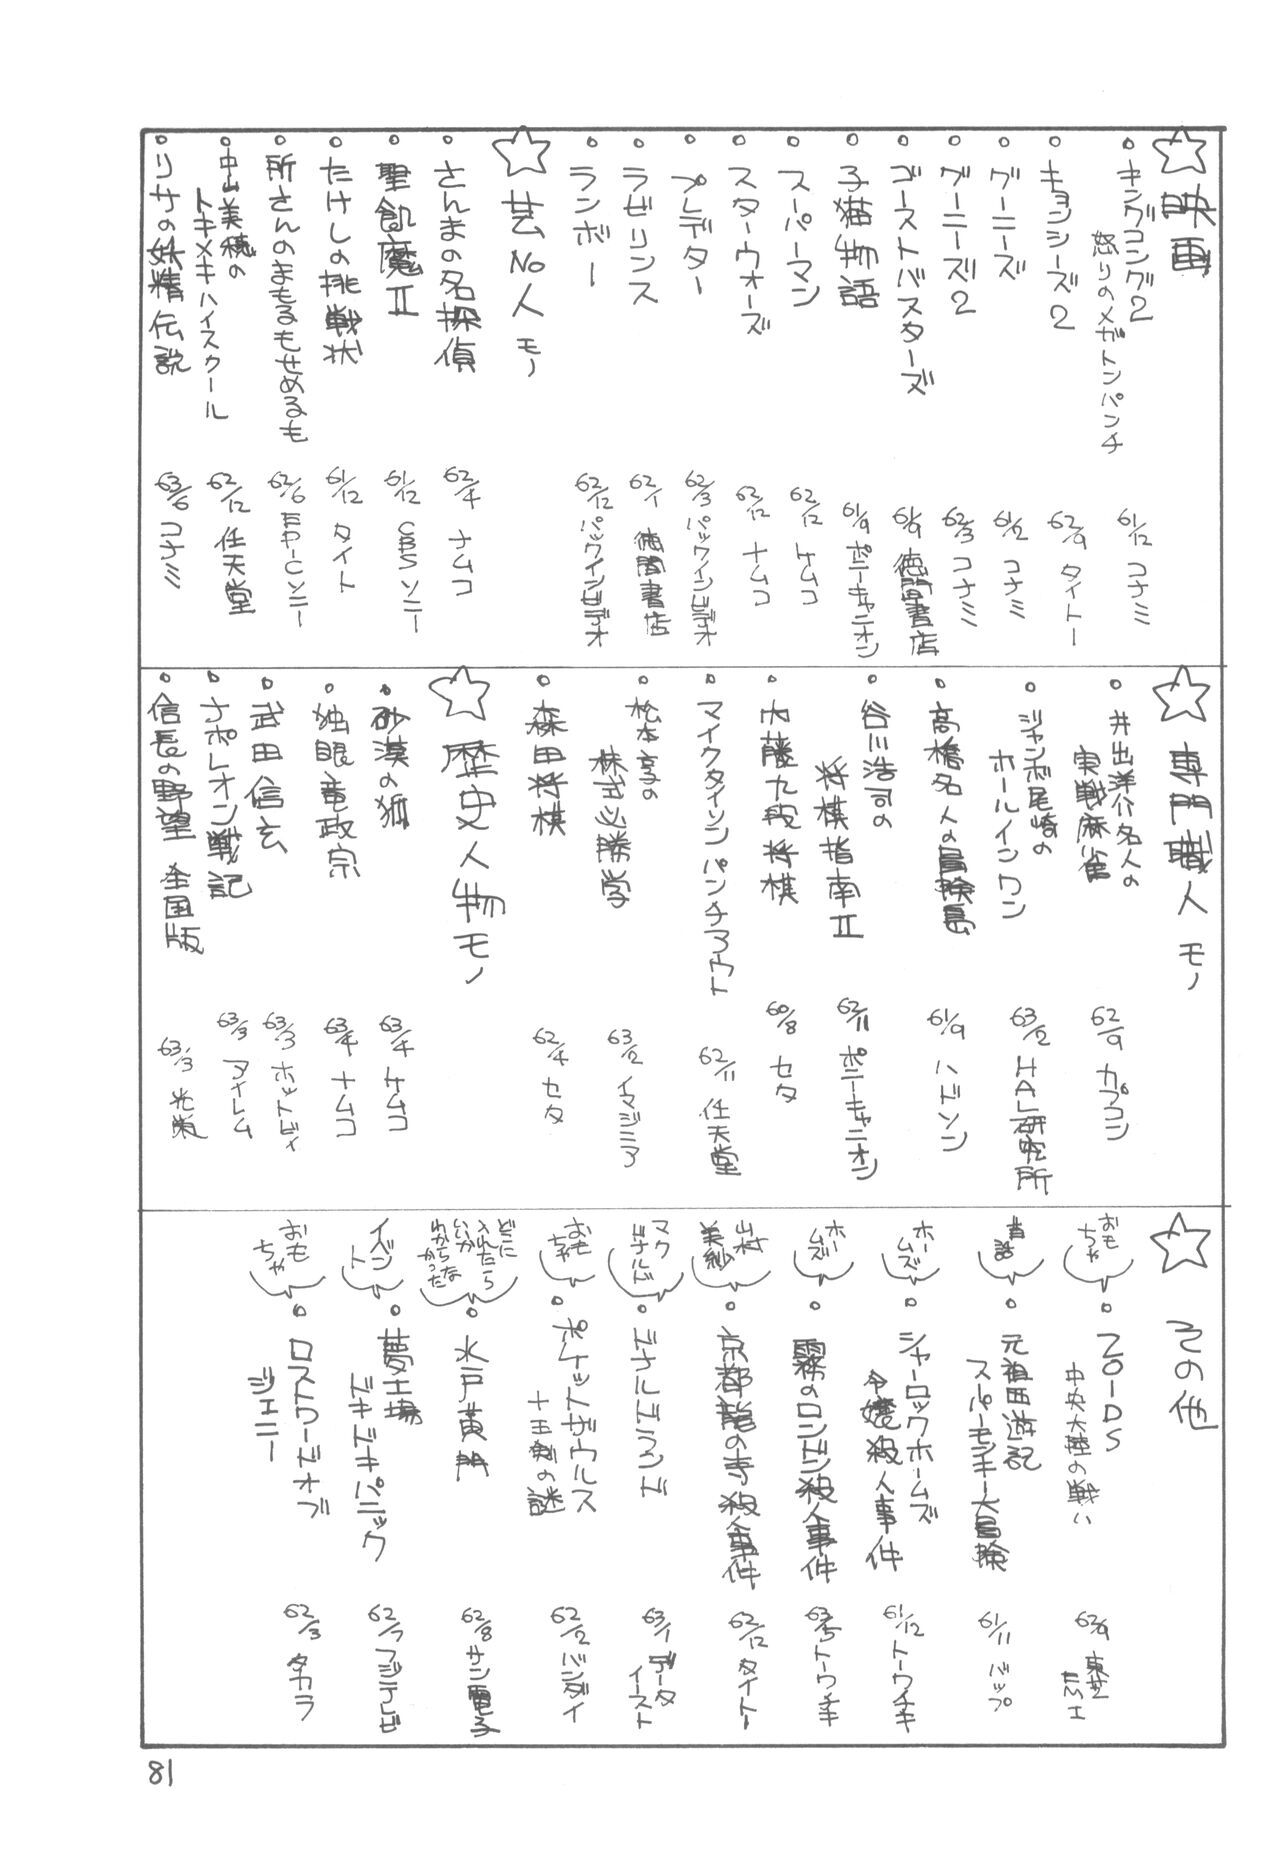 ☆映画
・キングコング2
怒りのメガトンパンチ
61/12 コナミ
・キョンシーズ2
62/9 タイトー
・グーニーズ
61/2 コナミ
・グーニーズ2
62/3 コナミ
・ゴーストバスターズ
61/9 徳間書店
・子猫物語
61/9 ポニーキャニオン
・スーパーマン
62/12 ケムコ
・スターウォーズ
62/12 ナムコ
・プレデター
62/3 パックインビデオ
・ラビリンス
62/1 徳間書店
・ランボー
62/12 パックインビデオ
☆芸No人モノ
・さんまの名探偵
62/4 ナムコ
・聖飢魔II
61/12 CBSソニー
・たけしの挑戦状
61/12 タイト
・所さんのまもるもせめるも
62/6 EPICソニー
・中山美穂の
トキメキハイスクール
62/12 任天堂
・リサの妖精伝説
63/6 コナミ
☆専門職人モノ
・井出洋介名人の
実戦麻雀
62/9 カプコン
・ジャンボ尾崎の
ホールインワン
63/2 HAL研究所
・高橋名人の冒険島
61/9 ハドソン
・谷川浩司の
将棋指南II
62/11 ポニーキャニオン
・内藤九段将棋
60/8 セタ
・マイクタイソンパンチアウト
62/11 任天堂
・松本亨の
株式必勝学
63/2 イマジニア
・森田将棋
62/4 セタ
☆歴史人物モノ
・砂漠の狐
63/4 ケムコ
・独眼竜政宗
63/4 ナムコ
・武田信玄
63/3 ホットビィ
・ナポレオン戦記
63/3 アイレム
・信長の野望 全国版
63/3 光栄
☆その他
おもちゃ
・ZOIDS
中央大陸の戦い
62/9 東芝EMI
昔話
・元祖西遊記
スーパーモンキー大冒険
61/11 バップ
ホームズ
・シャーロックホームズ
令嬢殺人事件
61/12 トーワチキ
ホームズ
・霧のロンドン殺人事件
63/5 トーワチキ
山村美紗
・京都龍の寺殺人事件
62/12 タイトー
マクドナルド
・ドナルドランド
63/1 データイースト
おもちゃ
・ポケットザウルス
十王剣の謎
62/2 バンダイ
どこに
入れたら
いいか
わからな
かった
・水戸黄門
62/8 サン電子
イベント
・夢工場
ドキドキパニック
62/7 フジテレビ
おもちゃ
・ロストワードオブ
ジェニー
62/3 タカラ
81